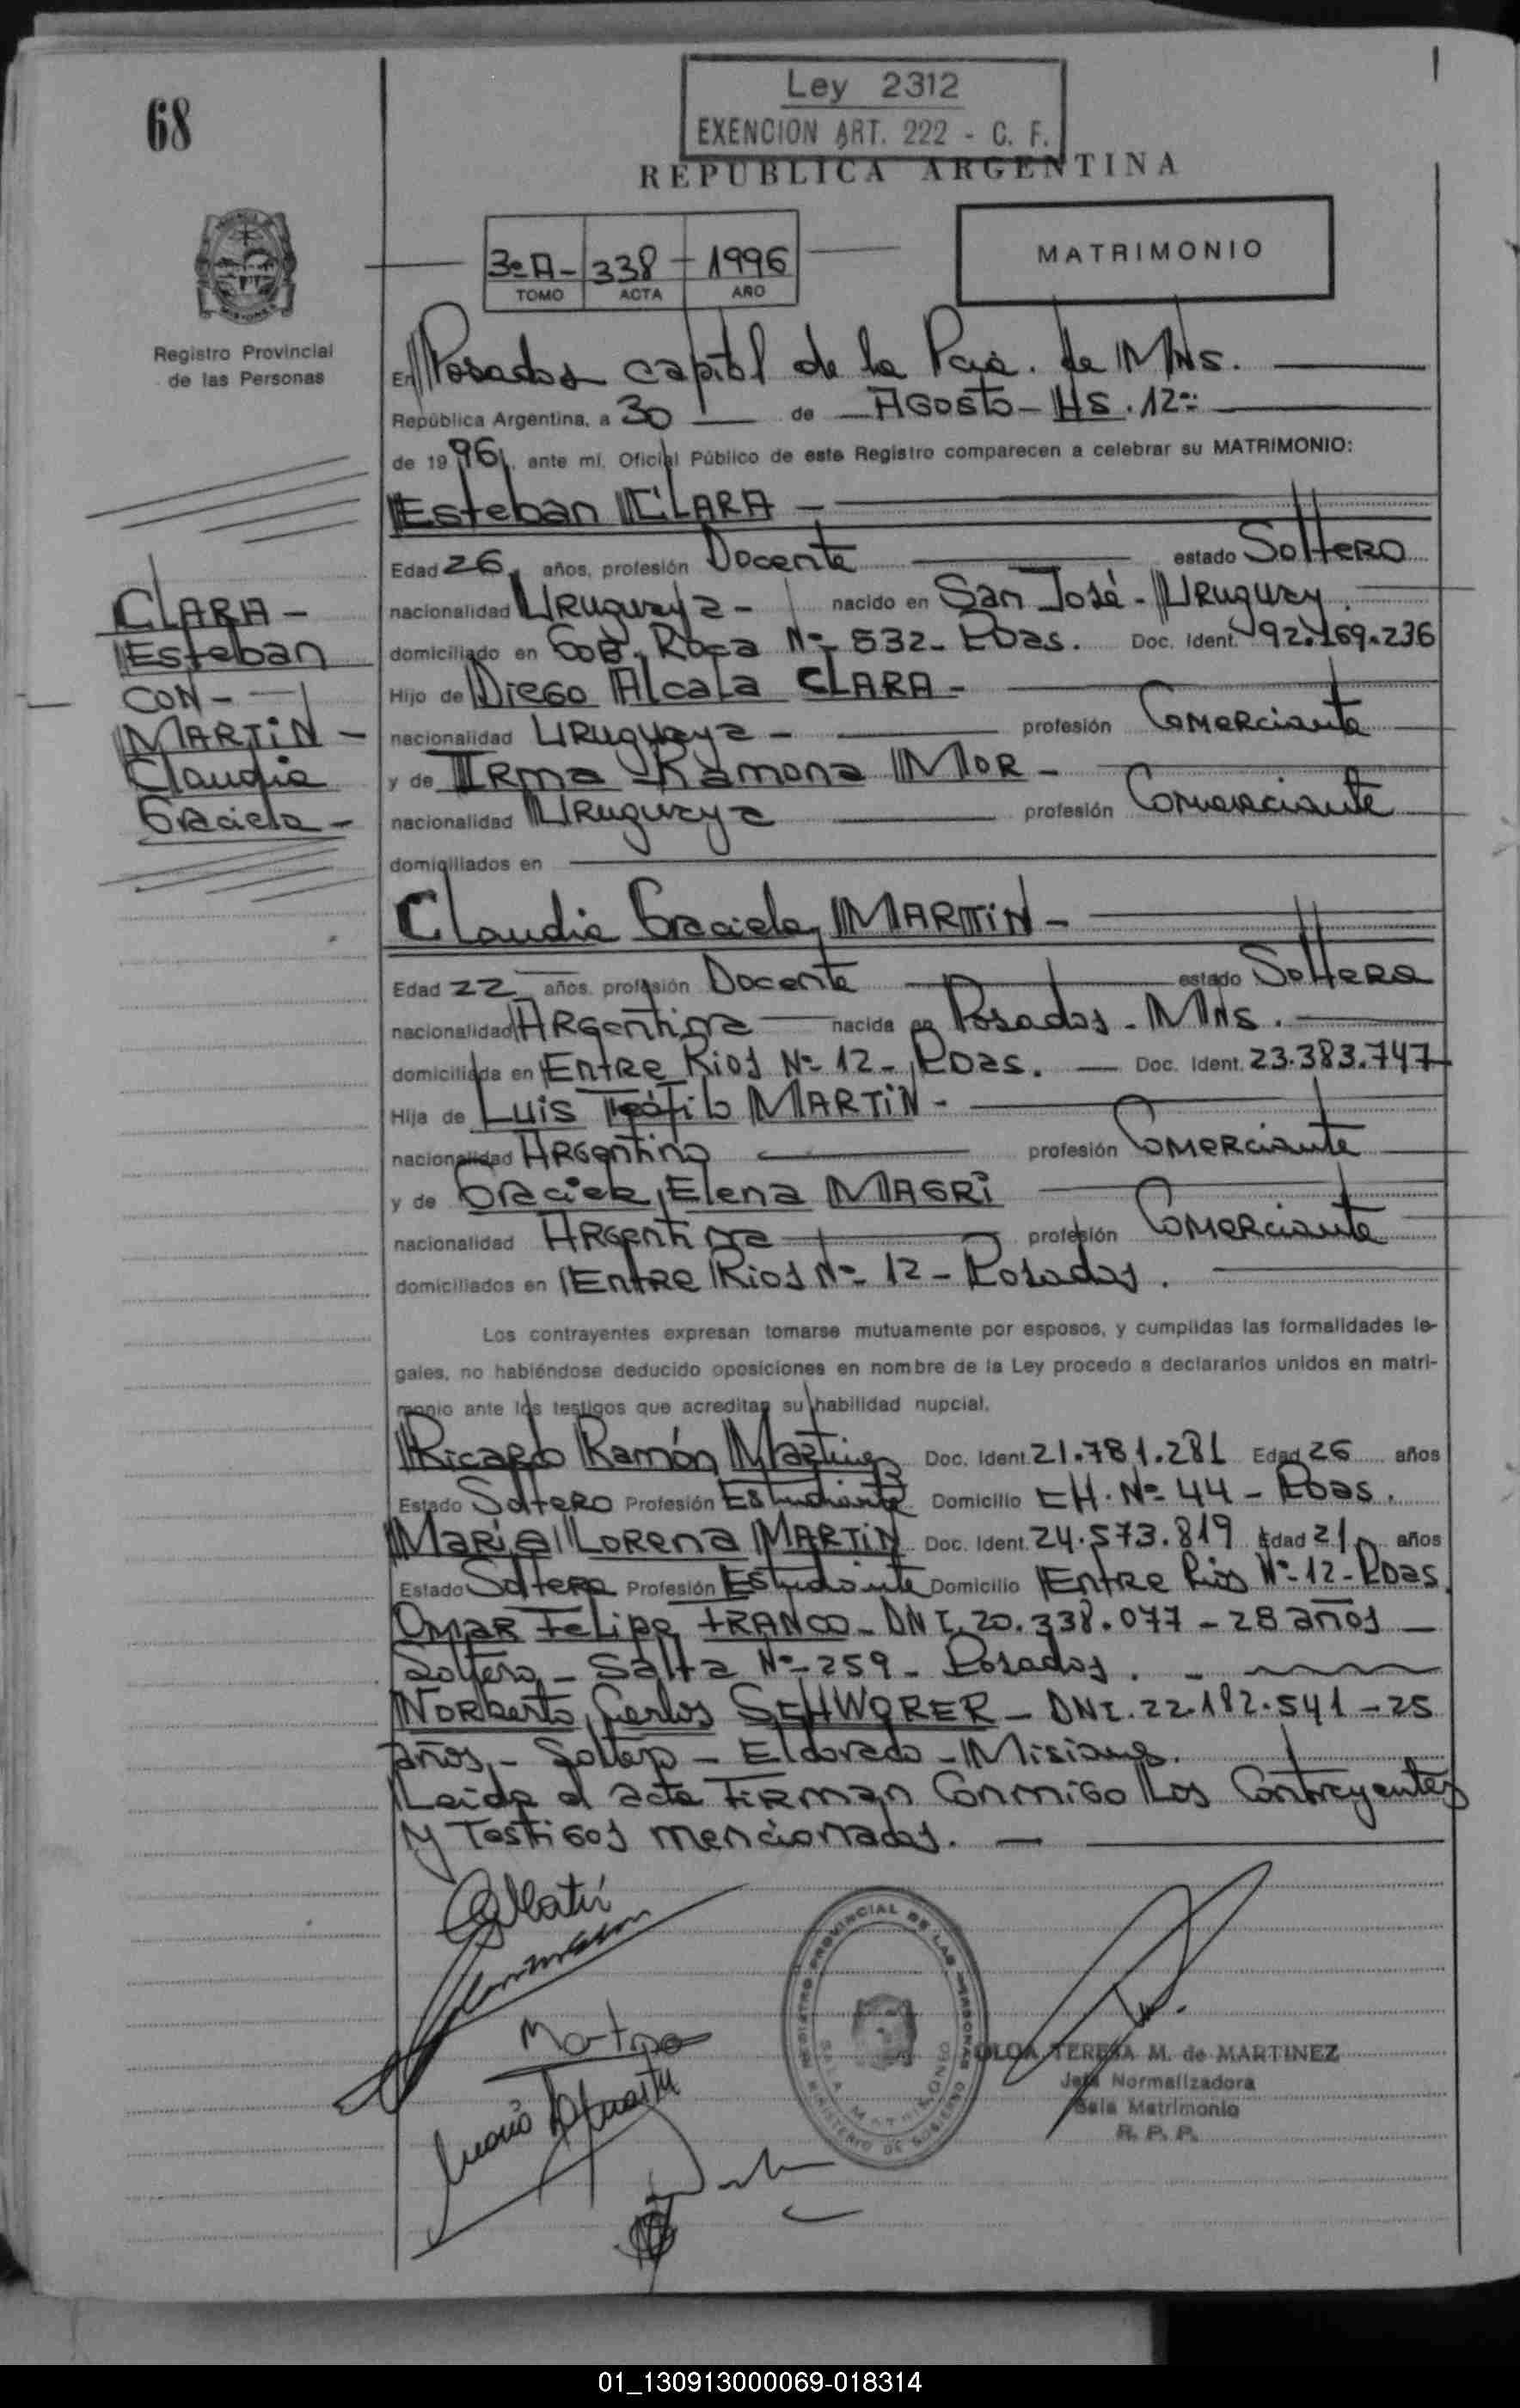 68
Ley 2312
EXENCION ART. 222 - C. F.
REPUBLICA ARGENTINA
3ºA - 338 - 1996
TOMO ACTA AÑO
MATRIMONIO
Registro Provincial
de las Personas
En Posadas capital de la Pcia. de Mns.
República Argentina, a 30 de AGOSTO - HS. 12
de 1996, ante mí, Oficial Público de este Registro comparecen a celebrar su MATRIMONIO:
Esteban CLARA -
Edad 26 años, profesión Docente estado Soltero
nacionalidad Uruguaya - nacido en San José - Uruguay.
domiciliado en GOB. Roca Nº 532 - Pdas. Doc. Ident. 92.169.236
Hijo de Diego Alcala CLARA -
nacionalidad Uruguaya - profesión Comerciante
y de Irma Ramona MOR -
nacionalidad Uruguaya profesión Comerciante
domiciliados en
CLARA -
Esteban
CON -
MARTIN -
Claudia
Graciela -
Claudia Graciela MARTIN -
Edad 22 años, profesión Docente estado Soltera
nacionalidad Argentina nacida en Posadas - Mns.
domiciliada en Entre Rios Nº 12 - Pdas. Doc. Ident. 23.383.747
Hija de Luis Teófilo MARTIN -
nacionalidad Argentina profesión Comerciante
y de Graciela Elena MAGRI
nacionalidad Argentina profesión Comerciante
domiciliados en Entre Rios Nº 12 - Posadas.
Los contrayentes expresan tomarse mutuamente por esposos, y cumplidas las formalidades le-
gales, no habiéndose deducido oposiciones en nombre de la Ley procedo a declararlos unidos en matri-
monio ante los testigos que acreditan su habilidad nupcial.
Ricardo Ramón Martinez Doc. Ident. 21.781.281 Edad 26 años
Estado Soltero Profesión Estudiante Domicilio CH. Nº 44 - Pdas.
Maria Lorena MARTIN Doc. Ident. 24.573.819 Edad 21 años
Estado Soltera Profesión Estudiante Domicilio Entre Rios Nº 12 - Pdas.
Omar Felipe FRANCO - DNI. 20.338.077 - 28 años -
Soltero - Salta Nº 259 - Posadas. -
Norberto Carlos SEHWORER - DNI. 22.182.541 - 25
años - Soltero - Eldorado - Misiones.
Leida el acta Firman Conmigo Los Contrayentes
y Testigos mencionados. -
REGISTRO PROVINCIAL DE LAS PERSONAS
SALA MATRIMONIO
MINISTERIO DE GOBIERNO
OLGA TERESA M. de MARTINEZ
Jefa Normalizadora
Sala Matrimonio
R. P. P.
01_130913000069-018314